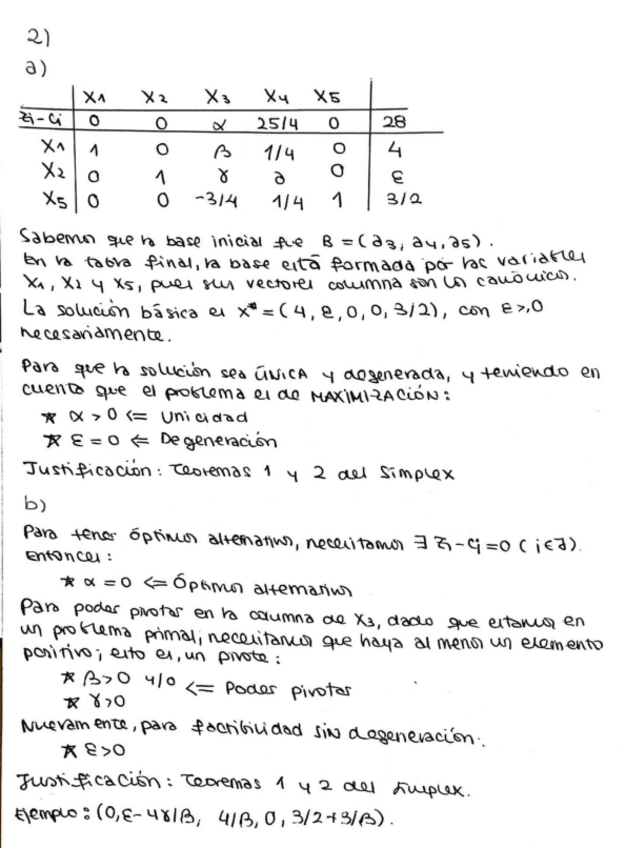 2)
a)
X1 X2 X3 X4 X5
Zi-Ci 0 0 α 25/4 0 28
X1 1 0 β 1/4 0 4
X2 0 1 γ ∂ 0 ε
X5 0 0 -3/4 1/4 1 3/2
Sabemos que la base inicial fue B = (a3, a4, a5).
En la tabla final, la base está formada por las variables
X1, X2 y X5, pues sus vectores columna son los canónicos.
La solución básica es x* = (4, ε, 0, 0, 3/2), con ε ≥ 0
necesariamente.
Para que la solución sea ÚNICA y degenerada, y teniendo en
cuenta que el problema es de MAXIMIZACIÓN:
* α > 0 <= Unicidad
* ε = 0 <= Degeneración
Justificación: Teoremas 1 y 2 del Simplex
b)
Para tener óptimos alternativos, necesitamos ∃ Zi-Ci=0 (i∈J).
Entonces:
* α = 0 <= Óptimos alternativos
Para poder pivotar en la columna de X3, dado que estamos en
un problema primal, necesitamos que haya al menos un elemento
positivo; esto es, un pivote:
* β>0 y/o <= Poder pivotar
* γ>0
Nuevamente, para factibilidad sin degeneración:
* ε>0
Justificación: Teoremas 1 y 2 del Simplex.
Ejemplo: (0, ε-4γ/β, 4/β, 0, 3/2+3/β).